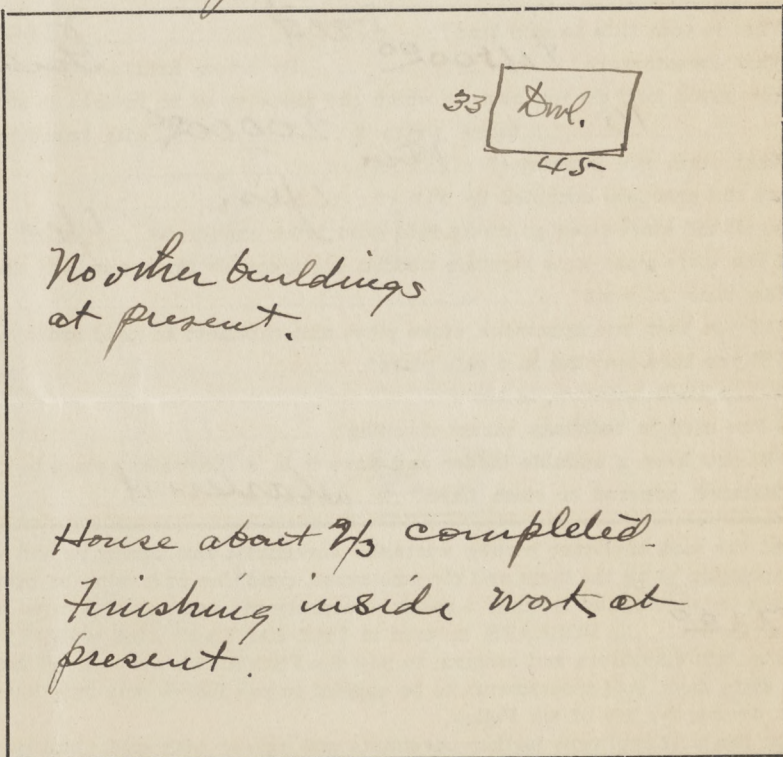 33 Dwl.
45
No other buildings
at present.
House about 2/3 completed.
Finishing inside work at
present.